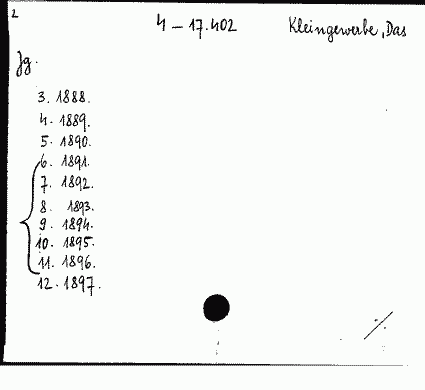 2
4 – 17.402 Kleingewerbe, Das
Jg.
3. 1888.
4. 1889.
5. 1890.
6. 1891.
7. 1892.
8. 1893.
9. 1894.
10. 1895.
11. 1896.
12. 1897.